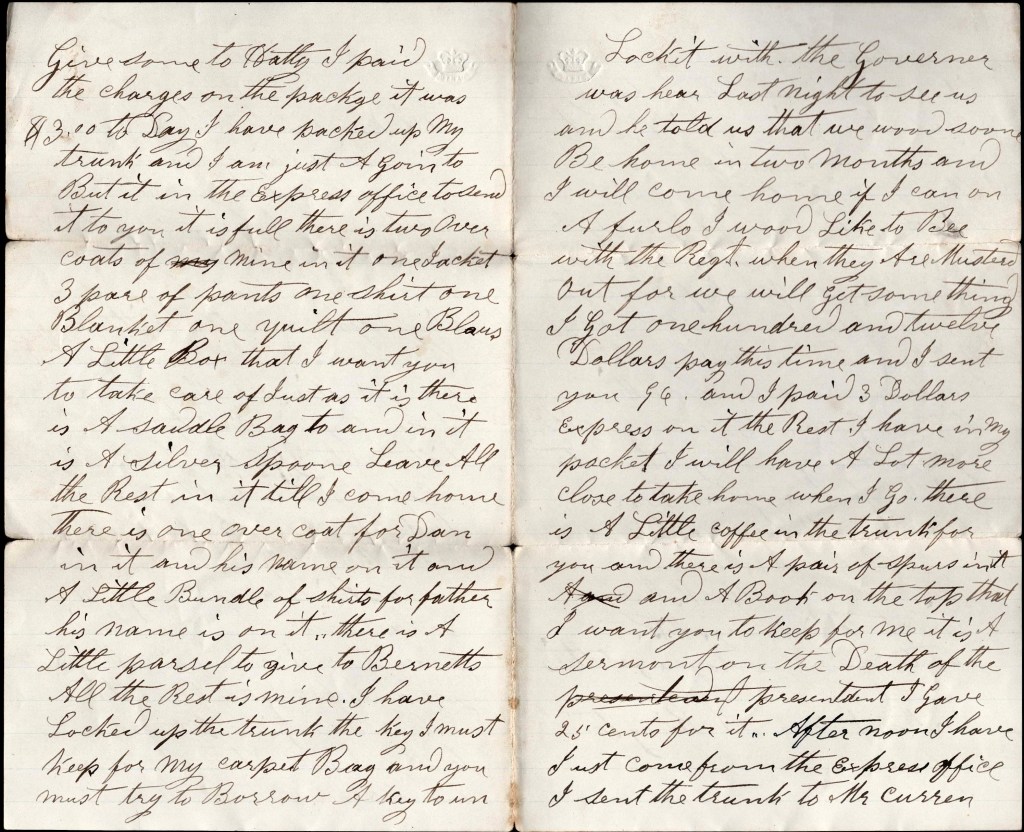 Give some to Hatty I paid
the charges on the packge it was
$3.00 to Day I have packed up My
trunk and I am just A Goin to
But it in the Express office to send
it to you it is full there is two Over
coats of my mine in it one Jacket
3 pare of pants one shirt one
Blanket one quilt one Blaus
A Little Box that I want you
to take care of Just as it is there
is A saddle Bag to and in it
is A silver spoone Leave All
the Rest in it till I come home
there is one over coat for Dan
in it and his name on it and
A Little Bundle of shirts for father
his name is on it.. there is A
Little parsel to give to Bernetts
All the Rest is mine. I have
Locked up the trunk the key I must
keep for My carpet Bag and you
must try to Borrow A key to un
Lock it with. the Governer
was hear Last night to see us
and he told us that we wood soone
Be home in two Months and
I will come home if I can on
A furlo I wood Like to Bee
with the Regt. when they Are Musterd
Out for we will get something
I Got one hundred and twelve
Dollars pay this time and I sent
you 96. and I paid 3 Dollars
Express on it the Rest I have in My
pocket I will have A Lot more
close to take home when I Go. there
is A Little coffee in the trunk for
you and there is A pair of spurs in it
and A Book on the top that
I want you to keep for me it is A
sermont on the Death of the
presendent I Gave
25 cents for it.. After noon I have
Just come from the Express office
I sent the trunk to Mr Curren